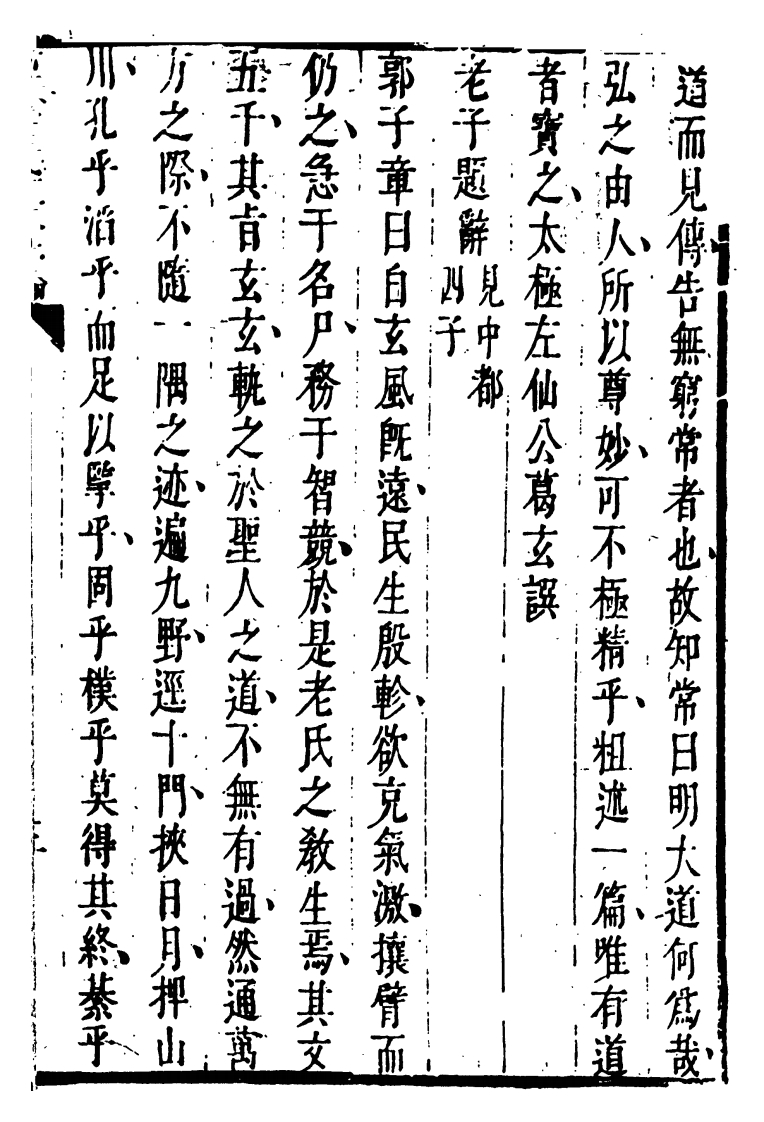 道而見傳告無窮常者也故知常曰明大道何爲哉
弘之由人所以尊妙可不極精乎粗述一篇唯有道
者寶之太極左仙公葛玄譔
老子題辭見中都四子
郭子章曰自玄風旣遠民生殷軫欲克氣激攘臂而
仍之急于名尸務于智競於是老氏之教生焉其文
五千其旨玄玄軌之於聖人之道不無有過然通萬
方之際不隨一隅之迹遍九野逕十門挾日月押山
川孔乎滔乎而足以擥乎固乎樸乎莫得其終綦乎